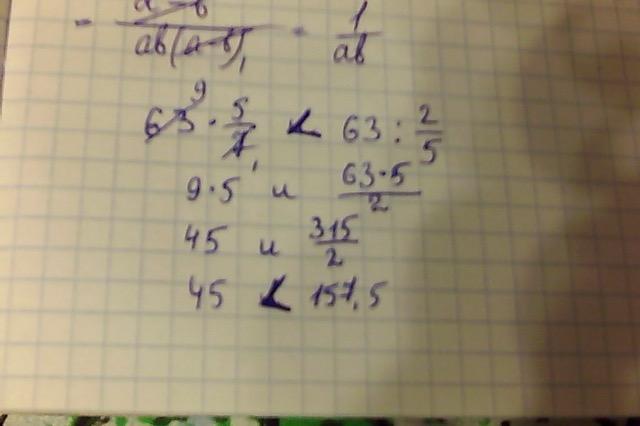 = a-b / ab(a-b) 1 = 1/ab
63 9 · 5/7 1 < 63 : 2/5
9·5 и 63·5/2
45 и 315/2
45 < 157,5